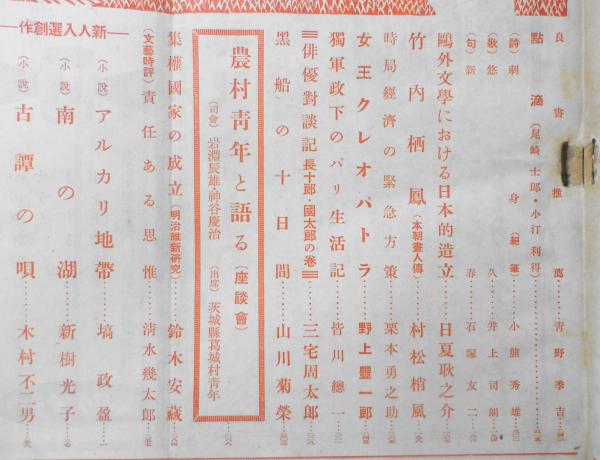 良書推薦……青野季吉
點滴（尾崎士郎・小汀利得）
（詩）朝……小熊秀雄
（歌）悠久……井上司朗
（句）新春……石塚友二
鷗外文學における日本的造立……日夏耿之介
竹内栖鳳（本朝畫人傳）……村松梢風
時局經濟の緊急方策……栗本勇之助
女王クレオパトラ……野上豐一郎
獨軍政下のパリ生活記……皆川總一
俳優對談記 長十郎・國太郎の巻……三宅周太郎
黑船の十日間……山川菊榮
農村青年と語る（座談會）
（司會）岩淵辰雄・神谷慶治
（出席）茨城縣葛城村青年
集權國家の成立（明治維新研究）……鈴木安藏
（文藝時評）責任ある思惟……清水幾太郎
―新人入選創作―
（小說）アルカリ地帶……塙政盈
（小說）南の湖……新樹光子
（小說）古譚の唄……木村不二男